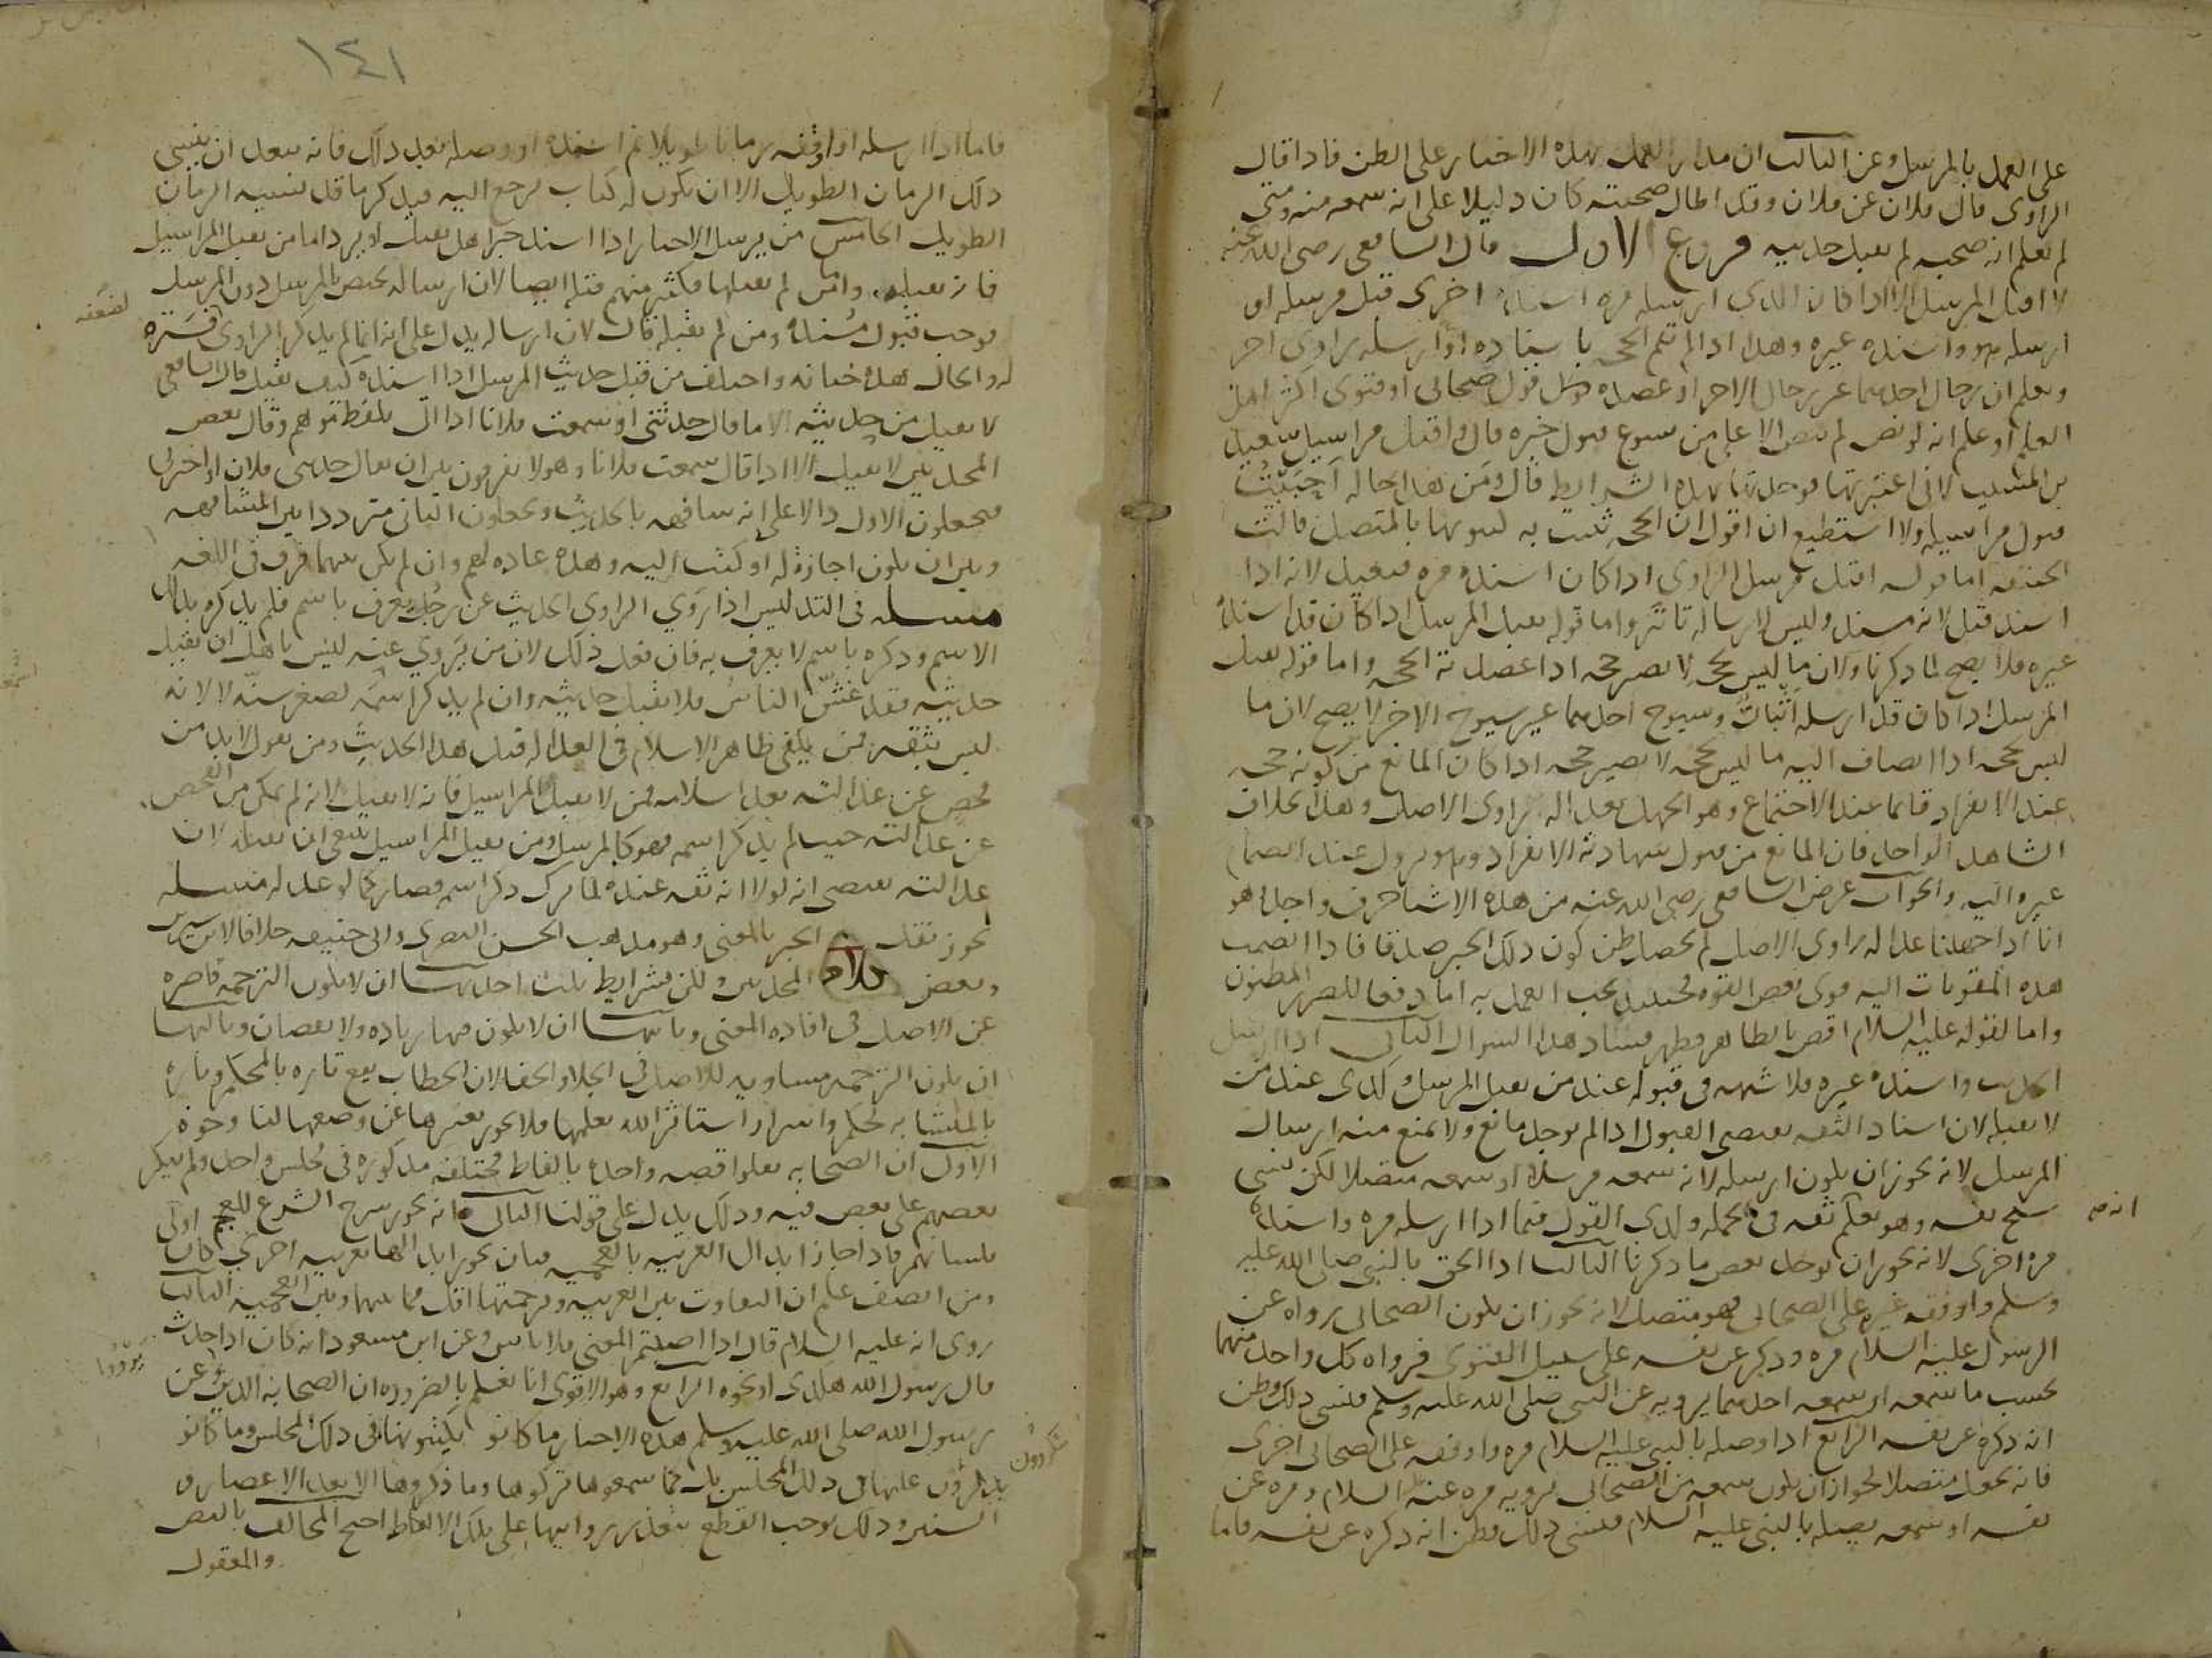 على العمل بالمرسل وعن الثالث ان مدار العمل بهذه الاخبار على الظن فاذا قال
الراوي قال فلان عن فلان وقد اطال صحبته كان دليلا على انه سمعه منه ومتى
لم يعلم انه صحبه لم يقبل حديثه فروع الاول قال الشافعي رضي الله عنه
لا اقبل المرسل الا اذا كان الذي ارسله مرة اسنده اخرى قبل مرسله او
ارسله هو واسنده غيره وهذا اذا لم تقم الحجة باسناده او ارسله راوي اخر
ويعلم ان رجال احدهما غير رجال الاخر او عضده قول صحابي او فتوى اكثر اهل
العلم او علم انه لو نص لم ينص الا على من يسوغ قبول خبره قال واقبل مراسيل سعيد
بن المسيب لاني اعتبرتها فوجدتها بهذه الشرايط قال ومن هذا حاله احببت
قبول مراسيله ولا استطيع ان اقول ان الحجة تثبت به كثبوتها بالمتصل قالت
الحنفية اما قوله اقبل مرسل الراوي اذا كان اسنده مرة فبعيد لانه اذا
اسند قبل لانه مسند وليس لارساله تاثير واما قوله يقبل المرسل اذا كان قد اسنده
غيره فلا يصح لما ذكرنا ولان ما ليس بحجة لا يصير حجة اذا عضدته الحجة واما قوله يقبل
المرسل اذا كان قد ارسله اثنان وشيوخ احدهما غير شيوخ الاخر لا يصح لان ما
ليس بحجة اذا انضاف اليه ما ليس بحجة لا يصير حجة اذا كان المانع من كونه حجة
عند الانفراد قائما عند الاجتماع وهو الجهل بعدالة راوي الاصل وهذا بخلاف
الشاهد الواحد فان المانع من قبول شهادته الانفراد وهو يزول عند انضمام
غيره اليه والجواب غرض الشافعي رضي الله عنه من هذه الاشيا حرف واحد وهو
انا اذا جهلنا عدالة راوي الاصل لم يحصل ظن كون ذلك الخبر صدقا فاذا انضمت
هذه المقويات اليه قوى بعض القوة فحينئذ يجب العمل به اما دفعا للضرر المظنون
واما لقوله عليه السلام اقض بالظاهر فظهر فساد هذا السؤال الثاني اذا ارسل
الحديث واسنده غيره فلا شبهة في قبوله عند من يقبل المرسل وكذى عند من
لا يقبله لان اسناد الثقة يقتضي القبول اذا لم يوجد مانع ولا يمنع منه ارسال
المرسل لانه يجوز ان يكون ارسله لانه سمعه مرسلا او سمعه متصلا لكن نسي
شيخ نفسه وهو يعلم ثقة في الجملة وكذى القول فيما اذا ارسله مرة واسنده
انه ثقة
مرة اخرى لانه يجوز ان يوجد بعض ما ذكرنا الثالث اذا الحق بالنبي صلى الله عليه
وسلم واوقفه غيره على الصحابي فهو متصل لانه يجوز ان يكون الصحابي رواه عن
الرسول عليه السلام مرة وذكر عن نفسه على سبيل الفتوى فرواه كل واحد منهما
بحسب ما سمعه او سمعه احدهما يرويه عن النبي صلى الله عليه وسلم فنسي ذلك وظن
انه ذكره عن نفسه الرابع اذا وصله بالنبي عليه السلام مرة واوقفه على الصحابي اخرى
فانه يجعل متصلا لجواز ان يكون سمعه من الصحابي يرويه مرة عنه السلام ومرة عن
نفسه او سمعه يصله بالنبي عليه السلام فنسي ذلك فظن انه ذكره عن نفسه فاما
١٤١
فاما اذا ارسله او اوقفه زمانا طويلا ثم اسنده او وصله بعد ذلك فانه يبعد ان ينسى
ذلك الزمان الطويل الا ان يكون له كتاب يرجع اليه فيذكر ما قد نسيه الزمان
الطويل الخامس من يرسل الاخبار اذا اسند خبرا هل يقبل او يرد اما من يقبل المراسيل
فانه يقبله واما من لم يقبلها فكثير منهم قبله ايضا لان ارساله يختص بالمرسل دون المرسل
فوجب قبول مسنده ومن لم يقبله قال لان ارساله يدل على انه انما لم يذكر الراوي فستره
لضعفه
له والحال هذه خيانة واختلف من قبل حديث المرسل اذا اسنده كيف يقبل قال الشافعي
لا يقبل من حديثه الا ما قال حدثني او سمعت فلانا اذا اتى بلفظ موهم وقال بعض
المحدثين لا يقبل الا اذا قال سمعت فلانا وهولا يفرقون بين ان يقال حدثني فلان او اخبرني
فيجعلون الاول دالا على انه شافهه بالحديث ويجعلون الثاني مترددا بين المشافهة
وبين ان يكون اجازة له او كتب اليه وهذه عادة لهم وان لم يكن بينهما فرق في اللغة
مسئله في التدليس اذا روي الراوي الحديث عن رجل يعرف باسم فلم يذكره بذلك
الاسم وذكره باسم لا يعرف به فان فعل ذلك لان من يروي عنه ليس باهل ان يقبل
حديثه فقد غش الناس فلا يقبل حديثه وان لم يذكر اسمه لصغر سنه لا لانه
ليس بثقة فمن يكتفي ظاهر الاسلام في العدالة قبل هذا الحديث ومن يقول لا بد من
فحص عن عدالته بعد اسلامه فمن لا يقبل المراسيل فانه لا يقبله لانه لم يمكن من الفحص
عن عدالته حيث لم يذكر اسمه فهو كالمرسل ومن يقبل المراسيل ينبغي ان يقبله لان
عدالته يقتضي انه لولا انه ثقة عنده لما ترك ذكر اسمه فصار كما لو عدله مسئله
يجوز نقل الخبر بالمعنى وهو مذهب الحسن البصري وابي حنيفة خلافا لابن سيرين
وبعض المحدثين ولكن بشرايط ثلث احديها ان لا يكون الترجمة قاصرة
عن الاصل في افادة المعنى وثانيها ان لا يكون فيها زيادة ولا نقصان وثالثها
ان يكون الترجمة مساوية للاصل في الجلا والخفا لان الخطاب يقع تارة بالمحكم وتارة
بالمتشابه لحكم واسرار استاثر الله بعلمها فلا يجوز تغييرها عن وضعها لنا وجوه
الاول ان الصحابة نقلوا قصة واحدة بالفاظ مختلفة مذكورة في مجلس واحد ولم ينكر
بعضهم على بعض فيه وذلك يدل على قولنا الثاني انه يجوز شرح الشرع للعجم
بلسانهم فاذا جاز ابدال العربية بالعجمية فبان يجوز ابدالها بعربية اخرى كان اولى
ومن انصف علم ان التفاوت بين العربية وترجمتها اقل مما بينها وبين العجمية الثالث
روى انه عليه السلام قال اذا اصبتم المعنى فلا باس وعن ابن مسعود انه كان اذا حدث
قال رسول الله هكذى او نحوه الرابع وهو الاقوى انا نعلم بالضرورة ان الصحابة الذين رووا عن
رسول الله صلى الله عليه وسلم هذه الاخبار ما كانوا يكتبونها في ذلك المجلس وما كانو
يكررون عليها في ذلك المجلس بل كما سمعوها تركوها وما ذكروها الا بعد الاعصار و
السنين وذلك يوجب القطع بتعذر روايتها على تلك الالفاظ احتج المخالف بالنص
والمعقول